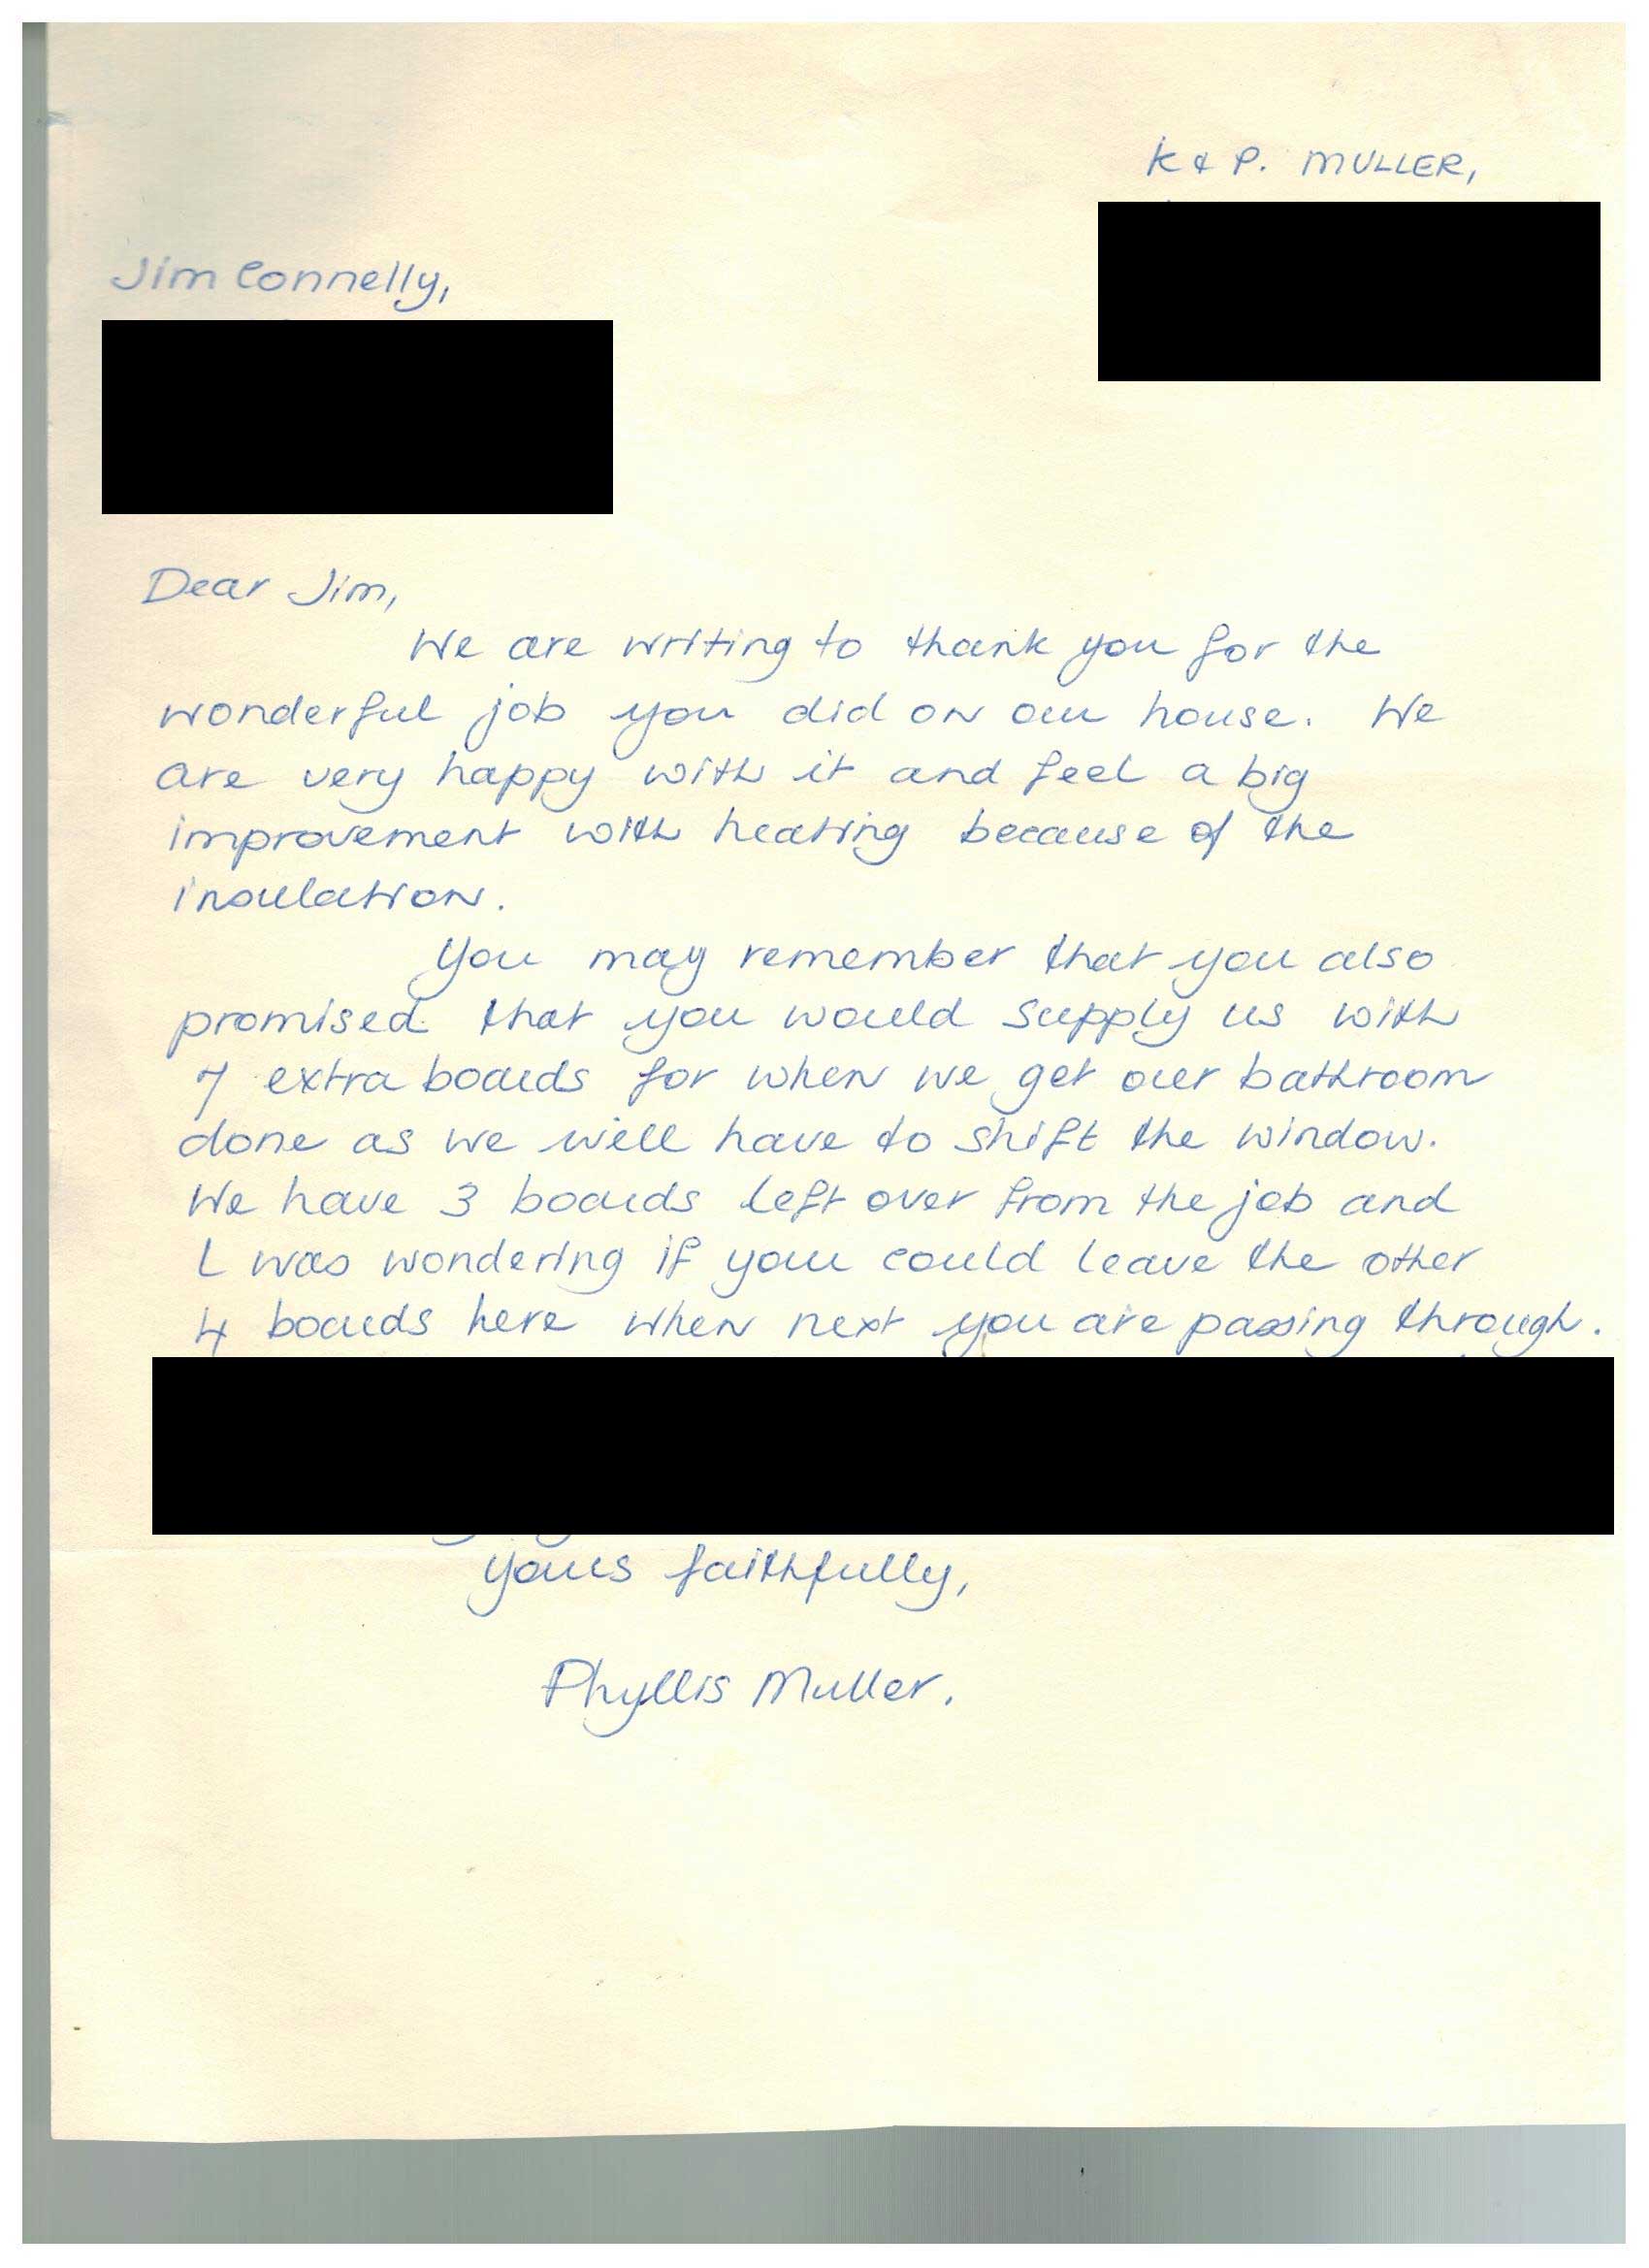 K & P. MULLER,
Jim Connelly,
Dear Jim,
We are writing to thank you for the
wonderful job you did on our house. We
are very happy with it and feel a big
improvement with heating because of the
insulation.
You may remember that you also
promised that you would supply us with
7 extra boards for when we get our bathroom
done as we will have to shift the window.
We have 3 boards left over from the job and
I was wondering if you could leave the other
4 boards here when next you are passing through.
Yours faithfully,
Phyllis Muller.